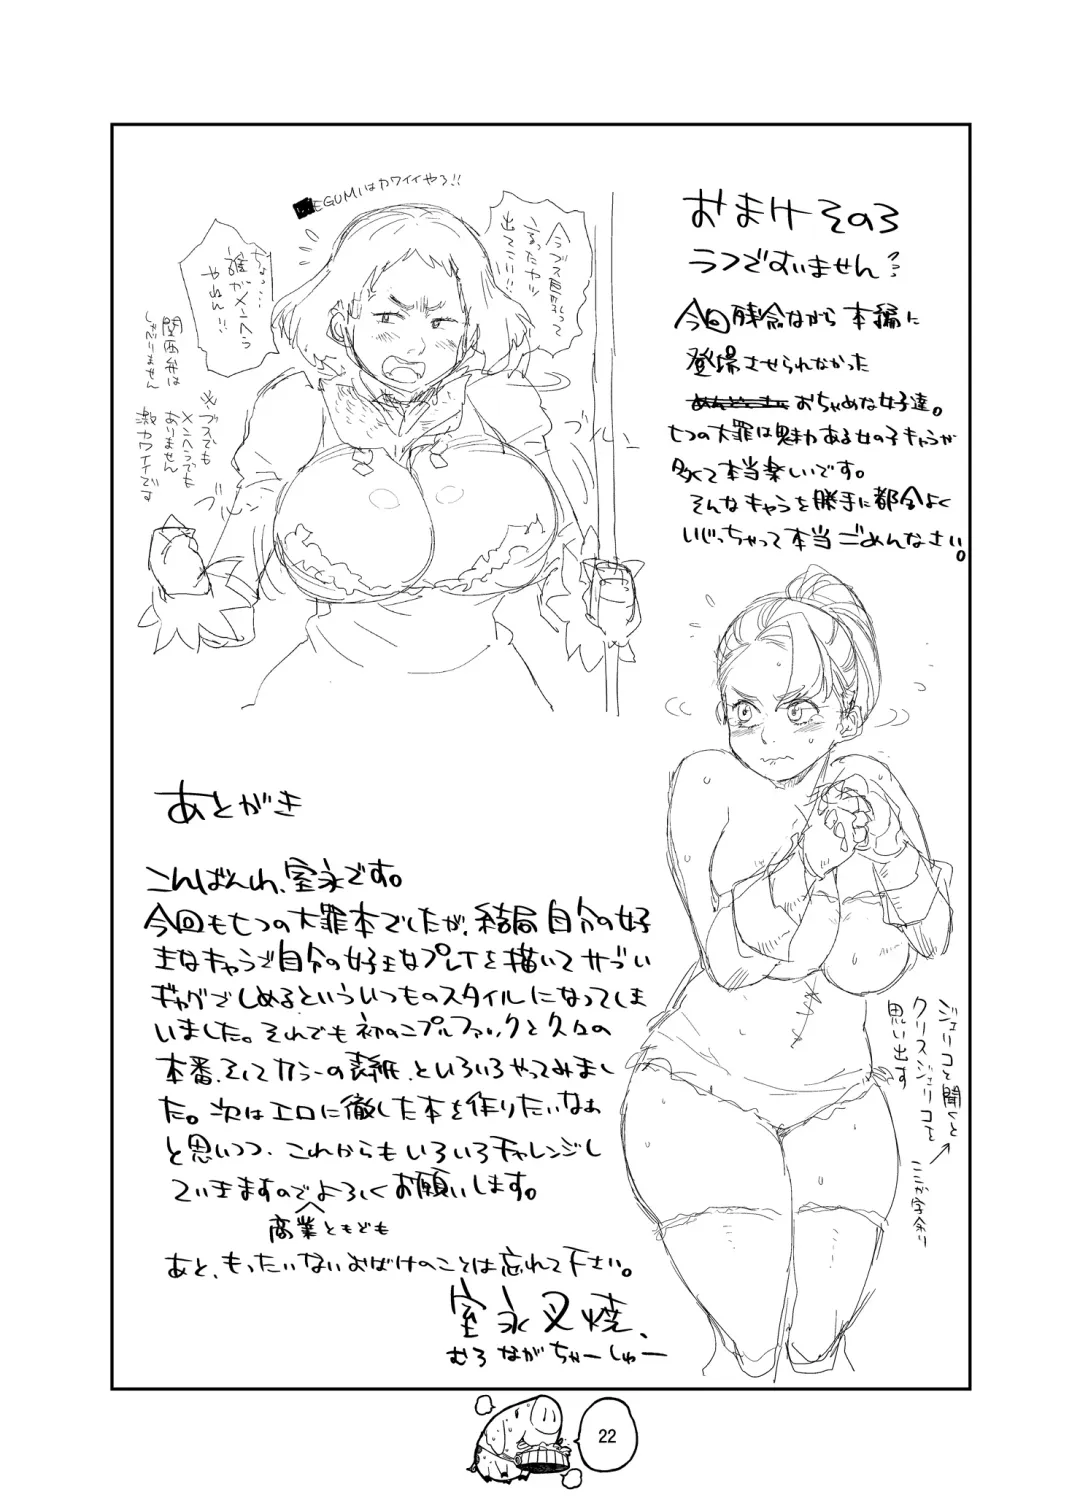 おまけその3
ラフですいません?
今回残念ながら本編に
登場させられなかった
おちゃめな女子達。
七つの大罪は魅力ある女の子キャラが
多くて本当楽しいです。
そんなキャラを勝手に都合よく
いじっちゃって本当ごめんなさい。
EGUMIはカワイイやろ!!
今ブス巨乳って
言ったヤツ
出てこい!!
なっ…
誰がメンヘラ
やねん!!
関西弁は
しゃべりません
※ブスでも
メンヘラでも
ありません
激カワイイです
ブルン
ブルン
ジェリコと聞くと
クリスジェリコを
思い出す
ここが字余り
あとがき
こんばんわ、室永です。
今回も七つの大罪本でしたが、結局自分の好
きなキャラで自分の好きなプレイを描いてサブい
ギャグでしめるといういつものスタイルになってしま
いました。それでも初のニプルファックと久々の
本番、そしてカラーの表紙、といろいろやってみまし
た。次はエロに徹した本を作りたいなぁ
と思いつつ、これからもいろいろチャレンジし
ていきますのでよろしくお願いします。
商業ともども
あと、もったいないおばけのことは忘れて下さい。
室永叉焼、
むろながちゃーしゅー
22